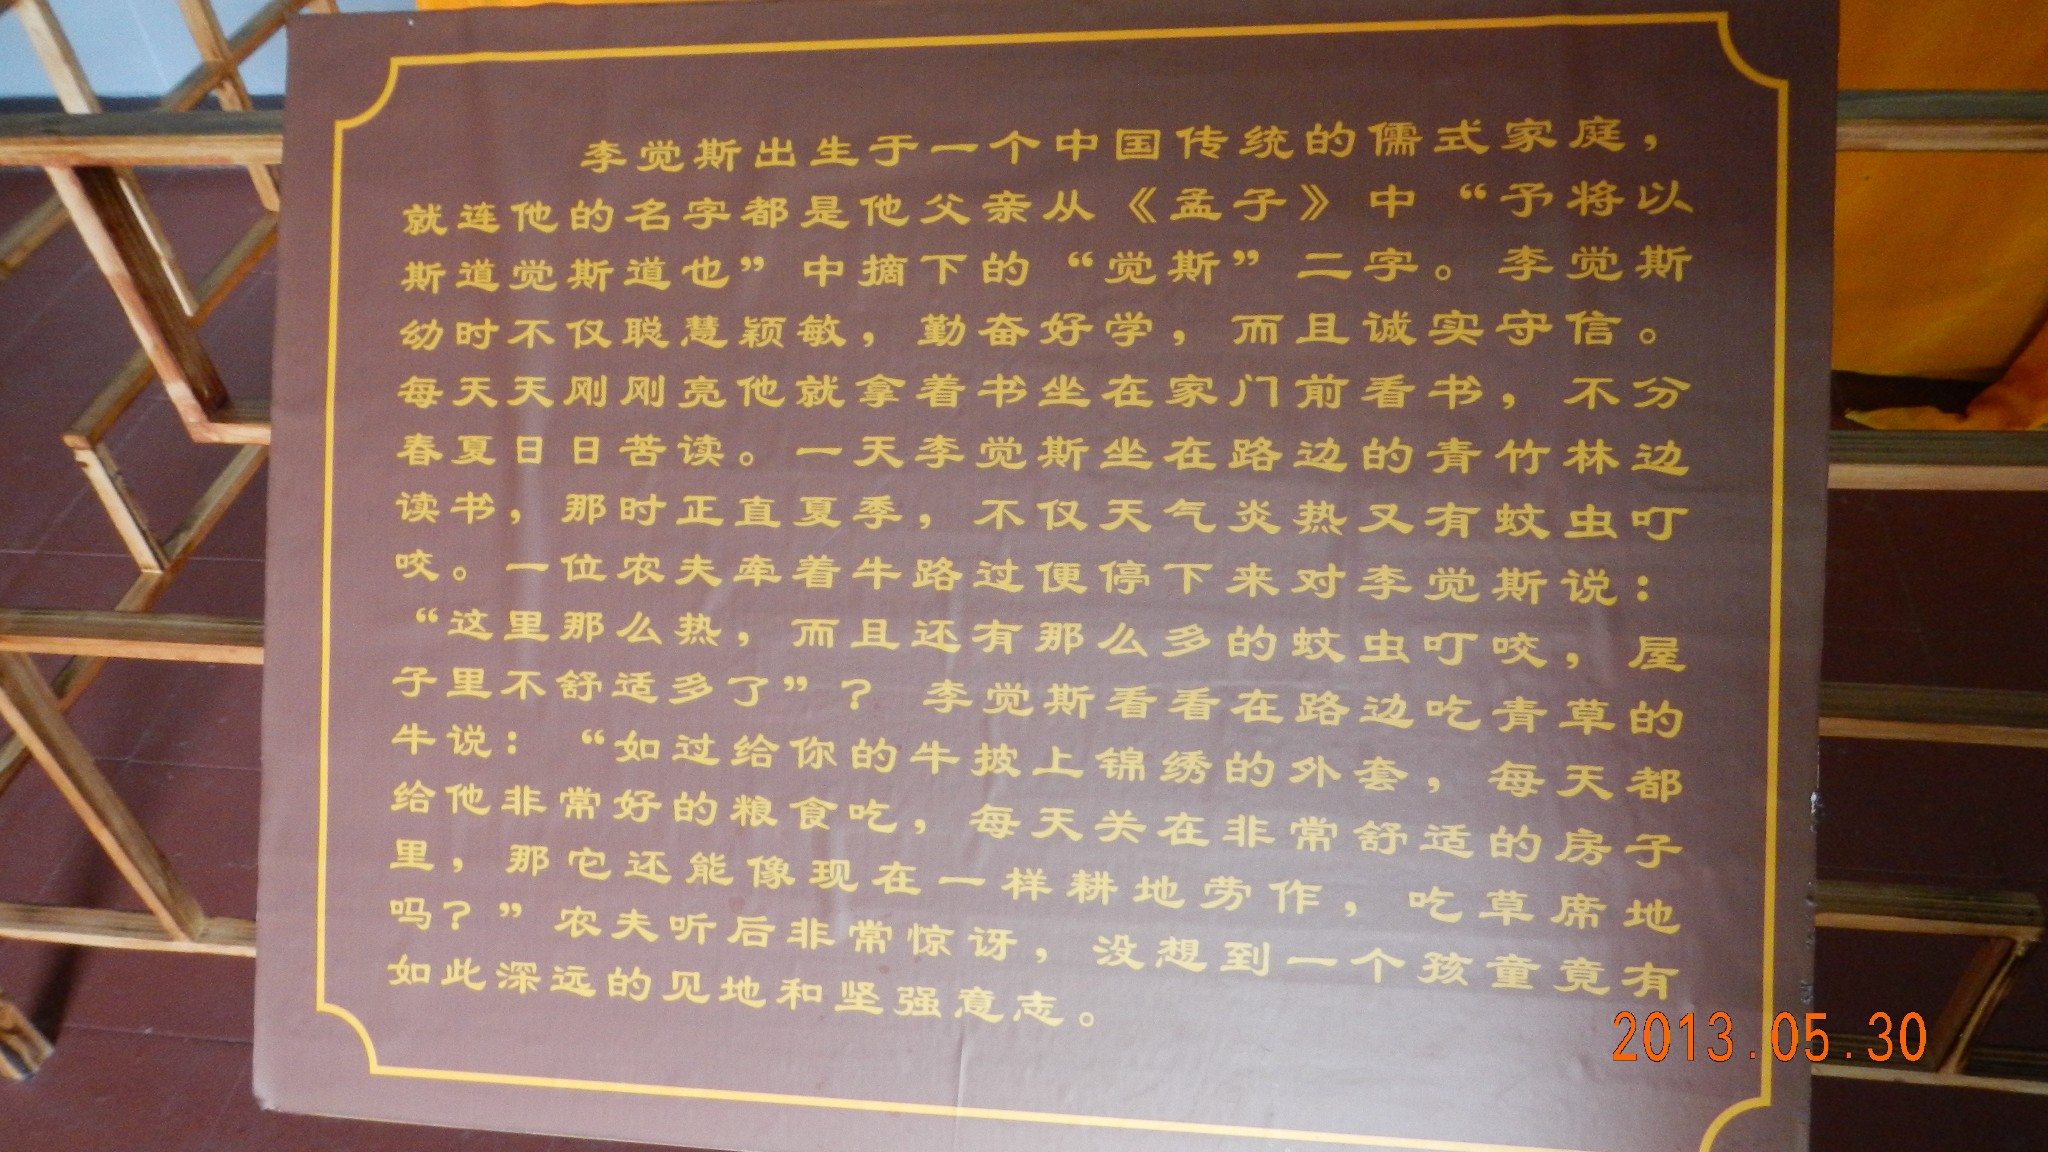 李觉斯出生于一个中国传统的儒式家庭，
就连他的名字都是他父亲从《孟子》中“予将以
斯道觉斯道也”中摘下的“觉斯”二字。李觉斯
幼时不仅聪慧颖敏，勤奋好学，而且诚实守信。
每天天刚刚亮他就拿着书坐在家门前看书，不分
春夏日日苦读。一天李觉斯坐在路边的青竹林边
读书，那时正直夏季，不仅天气炎热又有蚊虫叮
咬。一位农夫牵着牛路过便停下来对李觉斯说：
“这里那么热，而且还有那么多的蚊虫叮咬，屋
子里不舒适多了”？ 李觉斯看看在路边吃青草的
牛说：“如过给你的牛披上锦绣的外套，每天都
给他非常好的粮食吃，每天关在非常舒适的房子
里，那它还能像现在一样耕地劳作，吃草席地
吗？”农夫听后非常惊讶，没想到一个孩童竟有
如此深远的见地和坚强意志。
2013.05.30